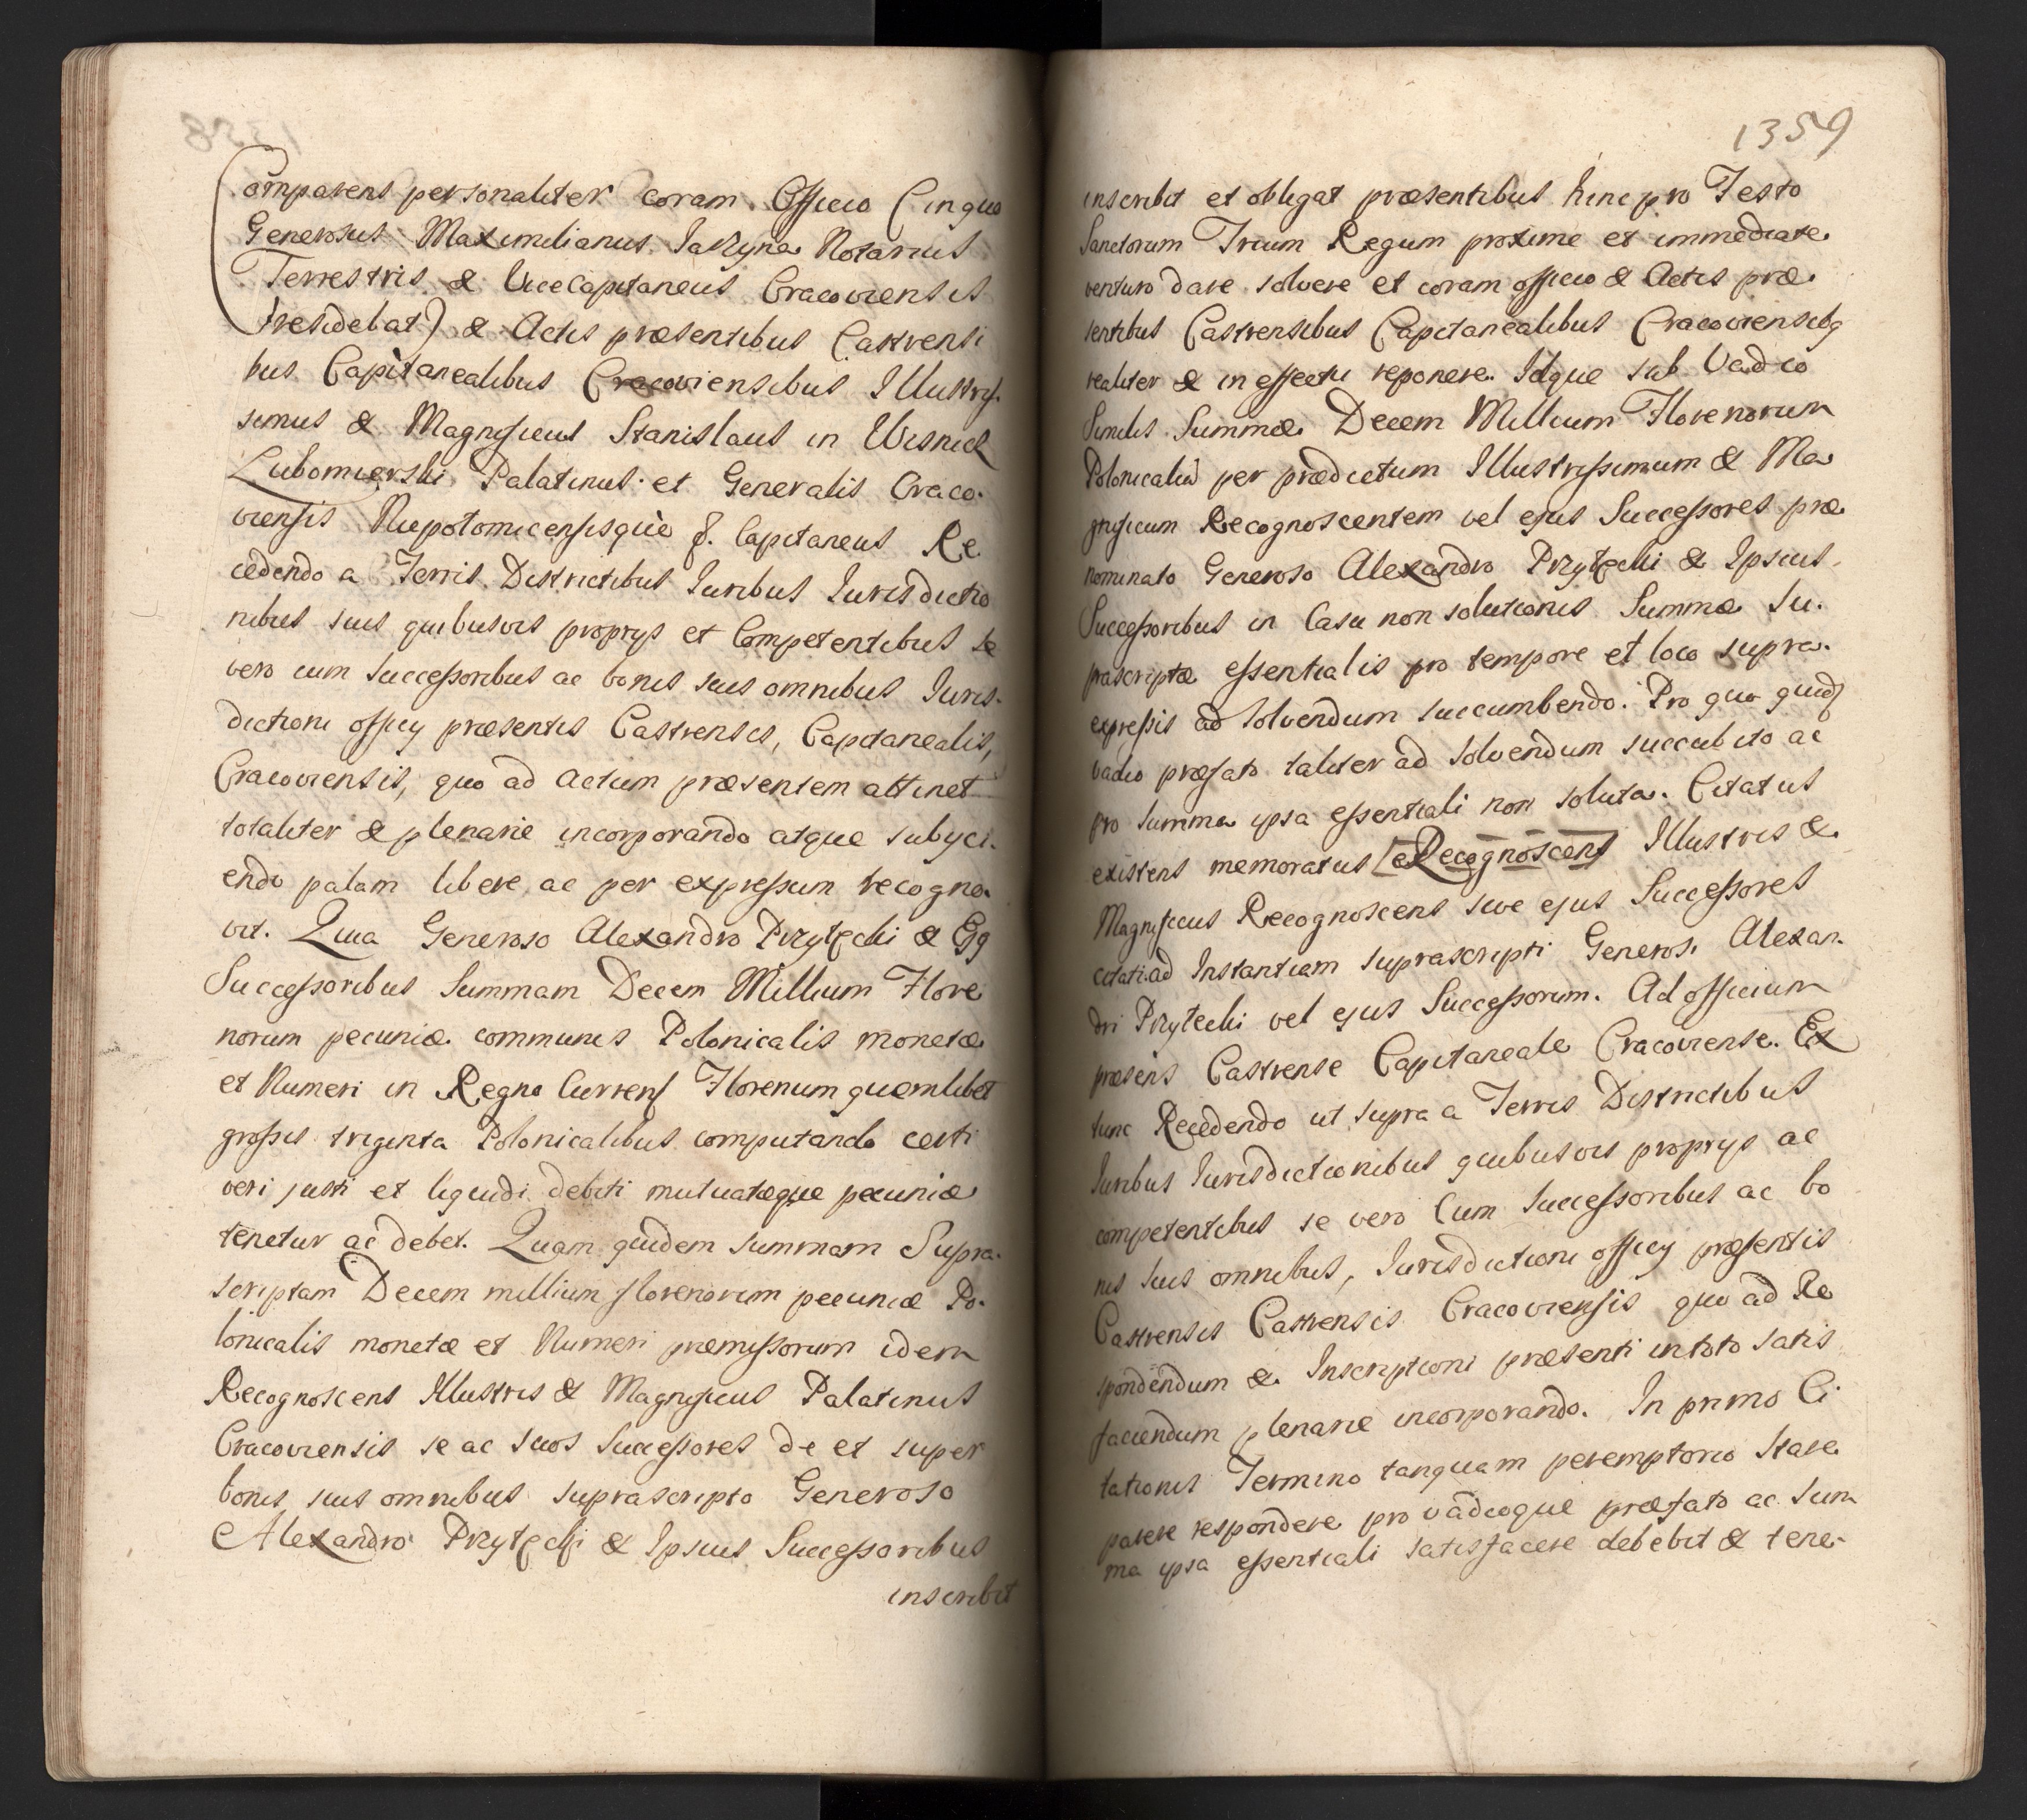 Comparens personaliter coram Officio (in quo
Generosus Maximilianus Jakzyna Notarius
Terrestris & ViceCapitaneus Cracoviensis
Presidebat) & Actis præsentibus Castrensi
bus Capitanealibus Cracoviensibus Illustris
simus & Magnificus Stanislaus in Wisnicz
Lubomierski Palatinus et Generalis Craco.
viensis Niepolomicensisque &. Capitaneus Re
cedendo a Terris Districtibus Iuribus Iurisdictio
nibus suis quibusvis proprys et Competentibus se
vero cum successoribus ac bonis suis omnibus Iuris.
dictioni officy præsentis Castrensis, Capitanealis,
Cracoviensis, quo ad actum præsentem attinet
totaliter & plenarie incorporando atque subyci.
endo palam libere ac per expressum recogno.
vit. Quia Generoso Alexandro Przyłęcki & Ejq
Successoribus Summam Decem Millium Flore
norum pecuniæ communis Polonicalis monetæ
et Numeri in Regno Currens Florenum quemlibet
grossis triginta Polonicalibus computando certi
veri justi et liquidi debiti mutuatæque pecuniæ
tenetur ac debet. Quam quidem summam Supra.
scriptam Decem millium florenorum pecuniæ Po.
lonicalis monetæ et Numeri præmissorum idem
Recognoscens Illustris & Magnificus Palatinus
Cracoviensis se ac suos successores de et super
bonis suis omnibus suprascripto Generoso
Alexandro Przyłęcki & Ipsius Successoribus
inscribit
1359
inscribit et obligat præsentibus hinc pro Festo
Sanctorum Trium Regum proxime et immediate
venturo dare solvere et coram officio & Actis præ.
sentibus Castrensibus Capitanealibus Cracoviensibq
realiter & in effectu reponere. Idque sub Vadio
Similis Summæ Decem Millium Florenorum
Polonicaliũ per prædictum Illustrissimum & Ma
gnificum Recognoscentem vel ejus Successores præ
nominato Generoso Alexandro Przyłęcki & Ipsius
Successoribus in Casu non solutionis Summæ Su.
prascriptæ essentialis pro tempore et loco supra.
expressis ad solvendum succumbendo. Pro quo quid
vadio præfato taliter ad solvendum succubito ac
pro summa ipsa essentiali non soluta. Citatus
existens memoratus [Recognoscens] Illustris &
Magnificus Recognoscens sive ejus Successores
citati ad Instantiam suprascripti Generosi Alexan.
dri Przyłecki vel ejus Successorum. Ad officium
præsens Castrense Capitaneale Cracoviense. Ex
tunc Recedendo ut supra a Terris Districtibus
Iuribus Iurisdictionibus quibusvis proprys ac
competentibus se vero cum successoribus ac bo
nis suis omnibus, Iurisdictioni officy præsentis
Castrensis Castrensis Cracoviensis quo ad Re
spondendum & Inscriptioni præsenti in toto satis
faciendum plenarie incorporando. In primo Ci
tationis Termino tanquam peremptorio stare
parere respondere pro vadioque præfato ac sum
ma ipsa essentiali satisfacere debebit & tene-